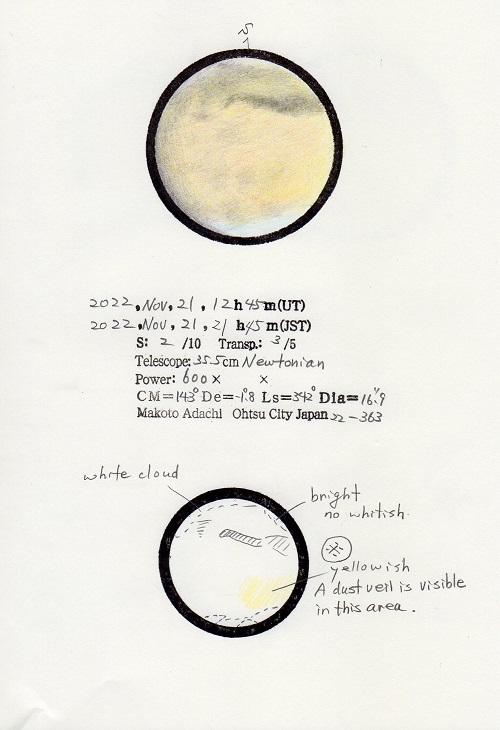 2022, Nov, 21, 12h45m(UT)
2022, Nov, 21, 21h45m(JST)
S: 2 /10 Transp.: 3/5
Telescope: 35.5cm Newtonian
Power: 600× ×
CM=143° De=-1.8 Ls=342° Dia=16.″9
Makoto Adachi Ohtsu City Japan 22-363
white cloud
bright
no whitish.
※
yellowish
A dust veil is visible
in this area.